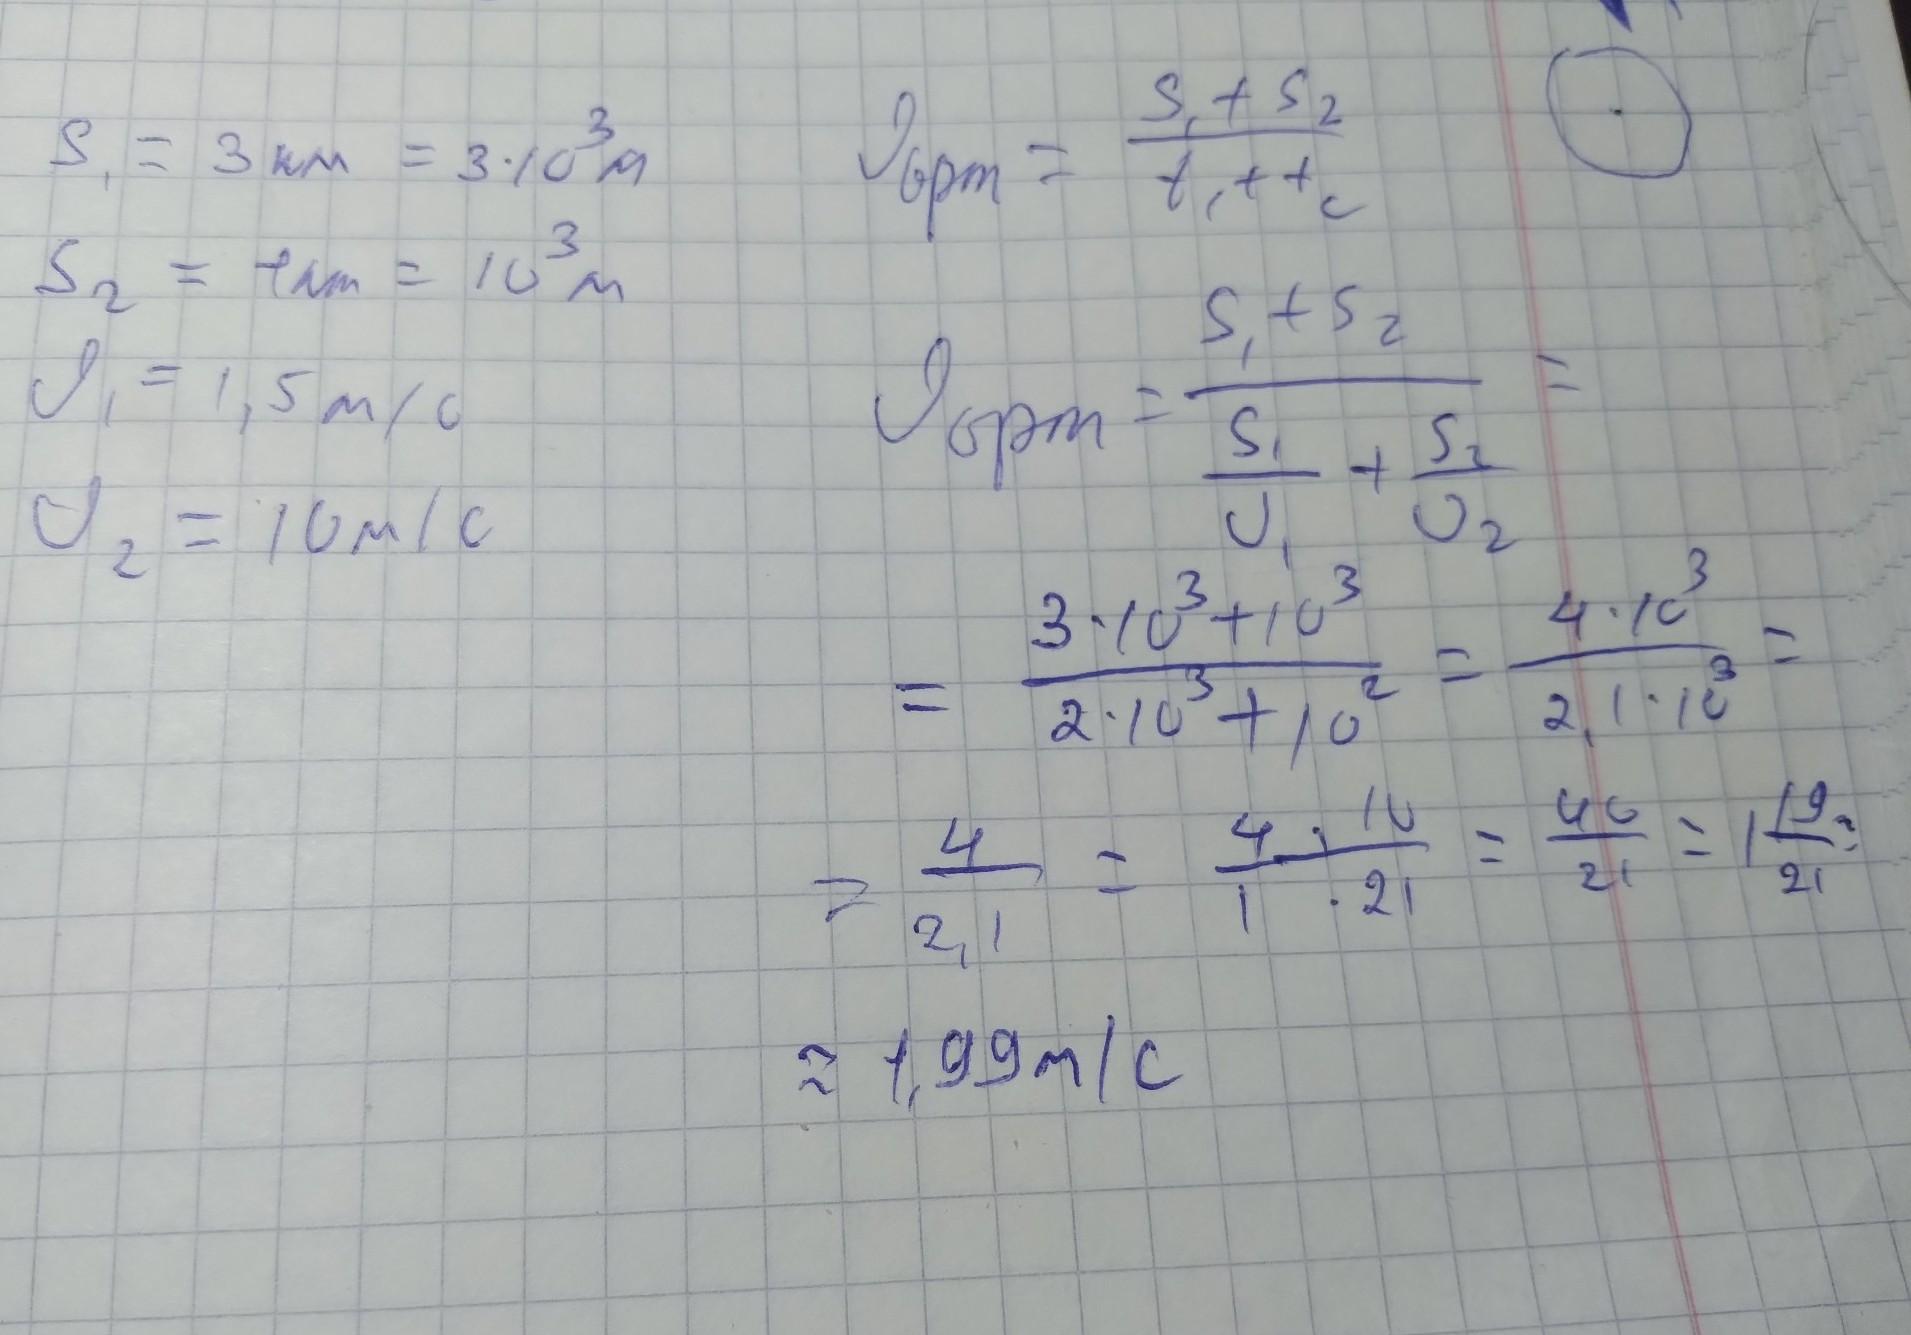 S₁ = 3 км = 3·10³ м
S₂ = 1 км = 10³ м
υ₁ = 1,5 м/с
υ₂ = 10 м/с
υорт = (S₁ + S₂)/(t₁ + tc)
υорт = (S₁ + S₂)/(S₁/υ₁ + S₂/υ₂) =
= (3·10³ + 10³)/(2·10³ + 10²) = (4·10³)/(2,1·10³) =
= 4/2,1 = (4·10)/(1·21) = 40/21 = 1 19/21 ≈
≈ 1,99 м/с